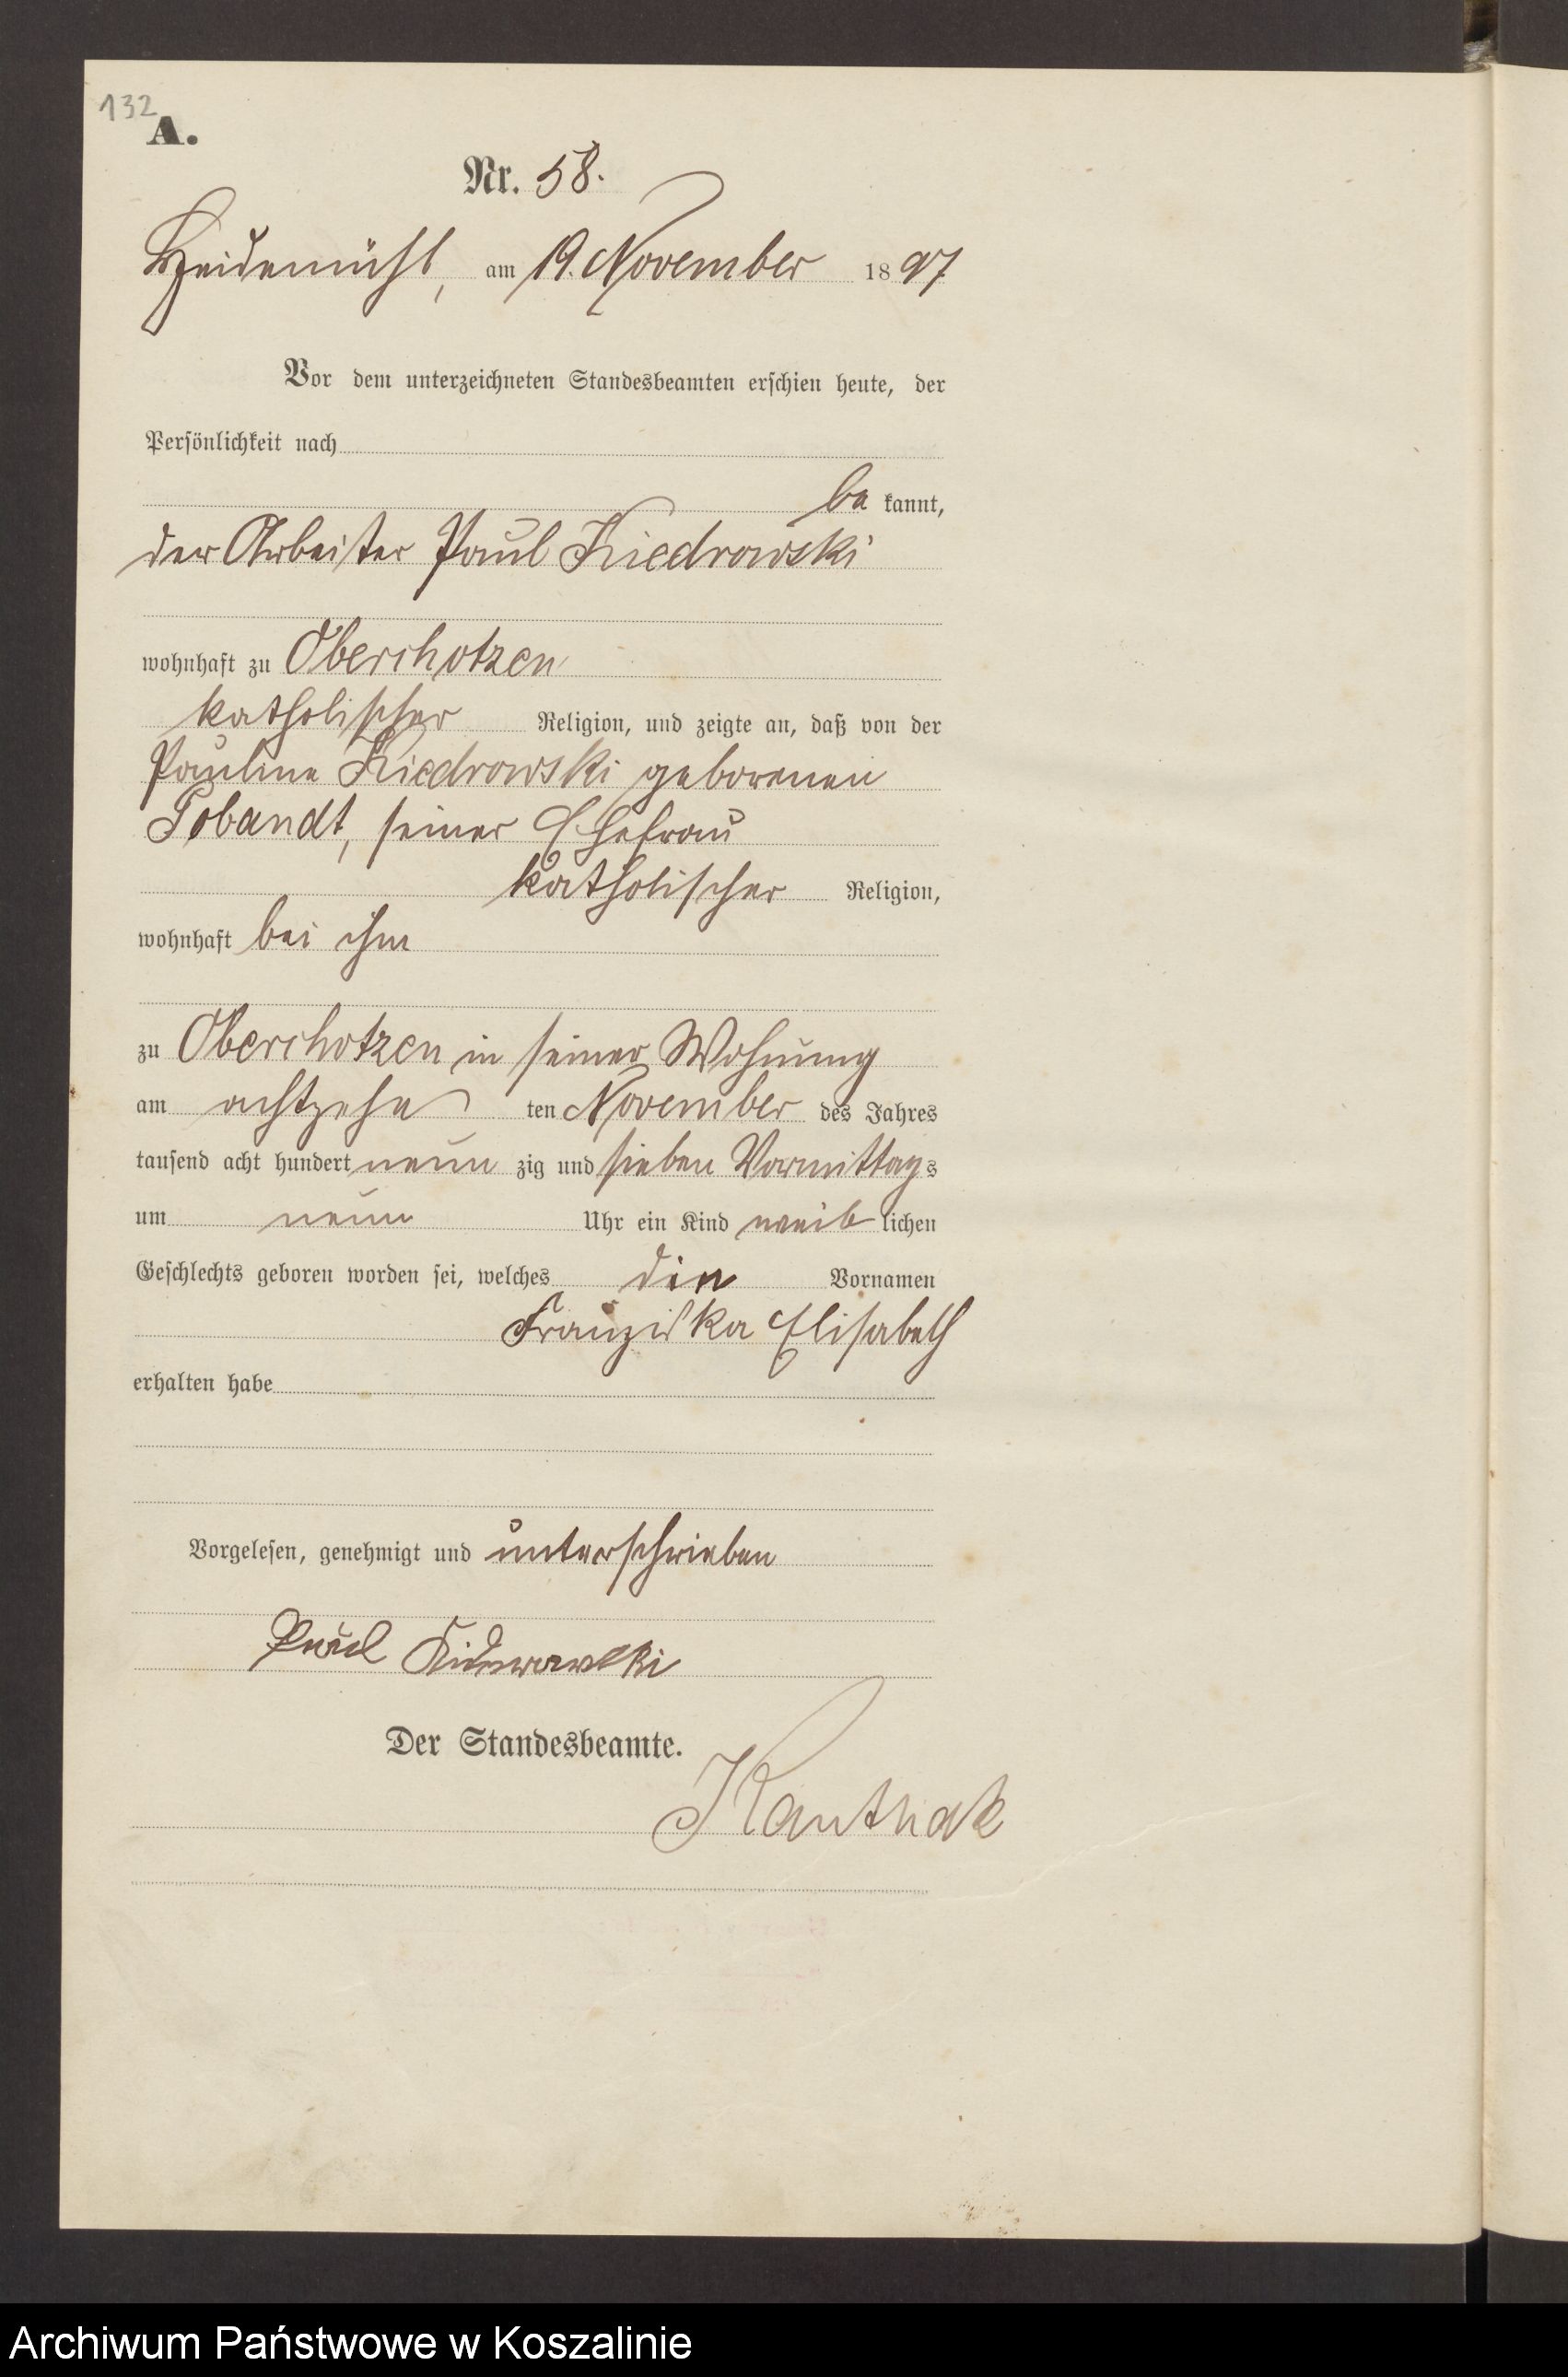 132
A.
Nr. 58.
Heidemühl, am 19. November 1897
Vor dem unterzeichneten Standesbeamten erschien heute, der
Persönlichkeit nach
be kannt,
der Arbeiter Paul Kiedrowski
wohnhaft zu Oberchotzen
katholischer Religion, und zeigte an, daß von der
Pauline Kiedrowski geborenen
Pobandt, seiner Ehefrau
katholischer Religion,
wohnhaft bei ihm
zu Oberchotzen in seiner Wohnung
am achtzehn ten November des Jahres
tausend acht hundert neun zig und sieben Vormittags
um neun Uhr ein Kind weib lichen
Geschlechts geboren worden sei, welches die Vornamen
Franziska Elisabeth
erhalten habe
Vorgelesen, genehmigt und unterschrieben
Paul
Der Standesbeamte.
Kanthak
Archiwum Państwowe w Koszalinie